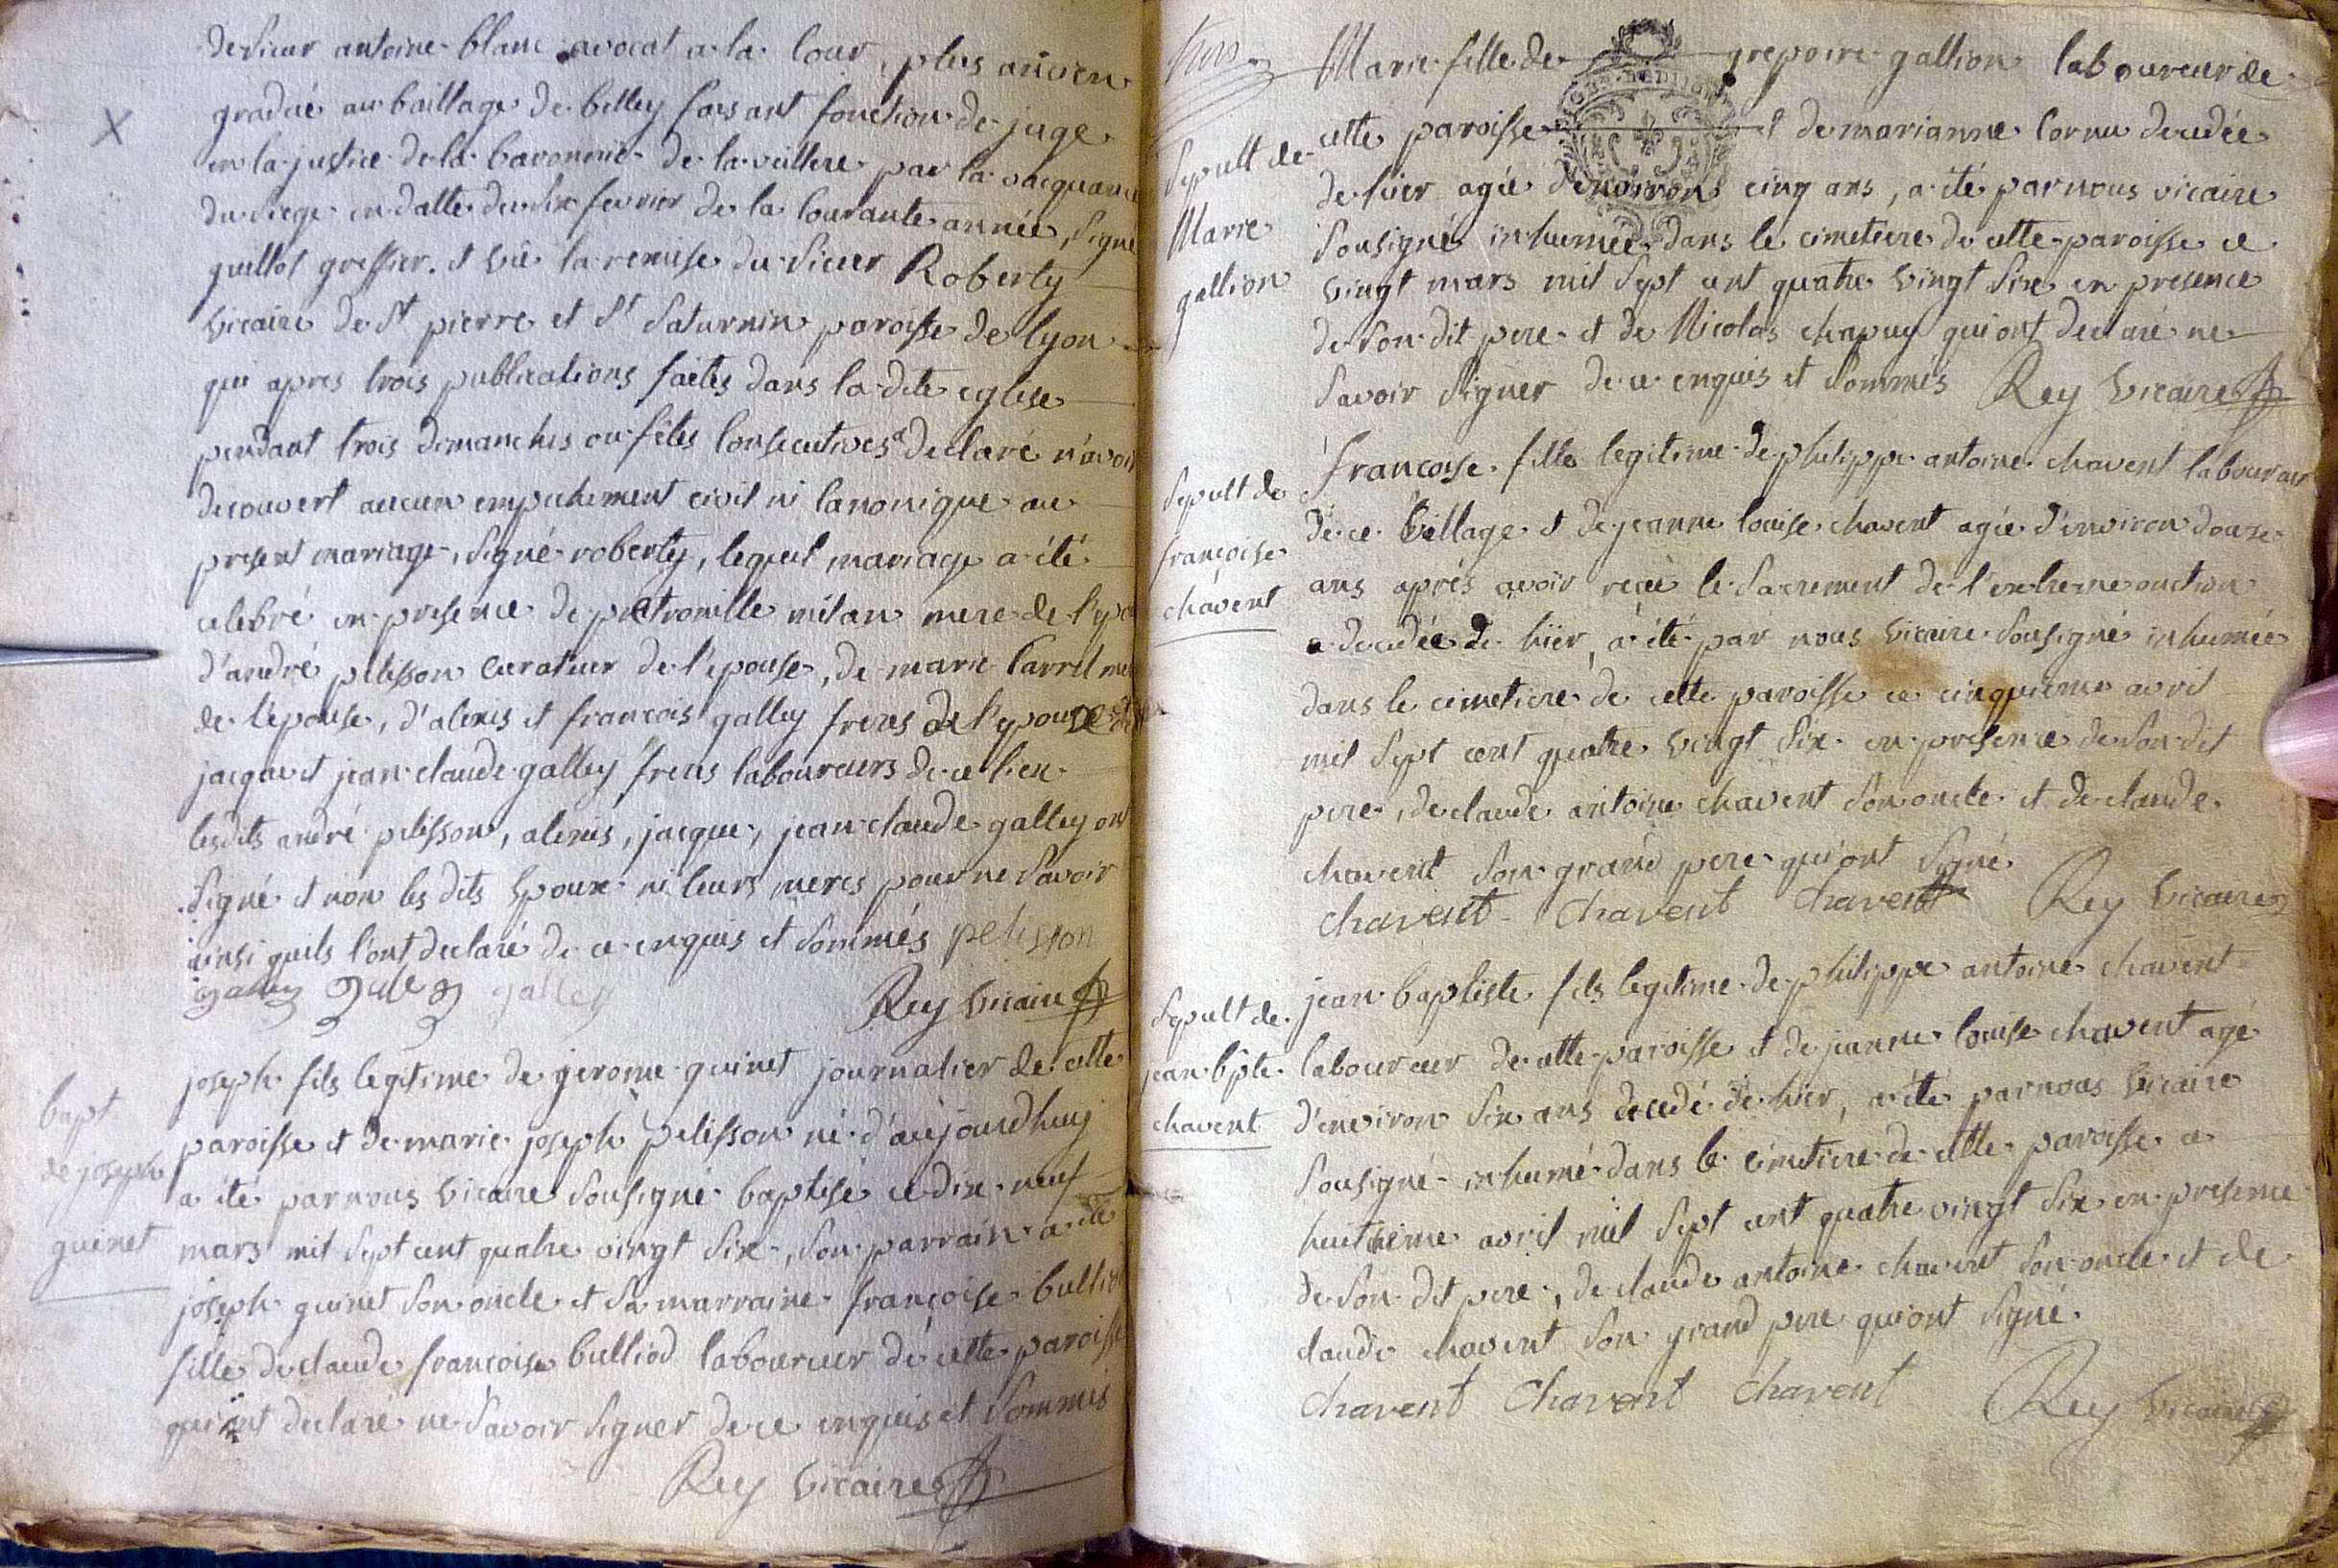 de sieur antoine blanc avocat a la Cour, plus ancien
gradué au baillage de belley faisant fonction de juge
X
en la justice de la baronnie de la veillere par la vacquance
du siege en datte du six fevrier de la Courante année, signé
guillot greffier. et vû la remise du sieur Roberty
vicaire de St pierre et St Saturnin paroisse de lyon
qui apres trois publications faites dans la dite eglise
pendant trois dimanches ou fêtes Consecutives a declaré n'avoir
decouvert aucun empechement civil ni Canonique au
present mariage, signé roberty, lequel mariage a été
celebré en presence de petronille milan mere de l'epo
d'andré pelisson Curateur de l'epouse, de marie Carrel me
de l'épouse, d'alexis et francois galley freres de l'epouse
jacque et jean claude galley freres laboureurs de ce lieu
lesdits andré pelisson, alexis, jacque, jean claude galley ont
signé et non les dits Epoux ni leurs meres pour ne savoir
ainsi quils l'ont declaré de ce enquis et sommés pelisson
galley galley galley Rey vicaire
bapt
de joseph
guinet
joseph fils legitime de jerome guinet journalier de cette
paroisse et de marie joseph pelisson né d'aujourdhuy
a été par nous vicaire sousigné baptisé ce dix neuf
mars mil sept cent quatre vingt six, son parrain a été
joseph guinet son oncle et sa marraine françoise bulliod
fille de claude françois bulliod laboureur de cette paroisse
qui ont declaré ne savoir signer de ce enquis et sommés
Rey vicaire
Sepult de
Marie
gallion
Marie fille de grepoire gallion laboureur de
cette paroisse et de marianne Cornu decedée
de hier agée d'environ cinq ans, a été par nous vicaire
sousigné inhumée dans le cimetiere de cette paroisse ce
vingt mars mil sept cent quatre vingt six en presence
de son dit pere et de Nicolas chapuy qui ont declaré ne
savoir signer de ce enquis et sommés Rey vicaire
Sepult de
françoise
chavent
françoise fille legitime de philippe antoine chavent laboureur
de ce village et de jeanne louise chavent agée d'environ douze
ans aprés avoir reçu le sacrement de l'extreme onction
a decedée de hier, a été par nous vicaire sousigné inhumée
dans le cimetiere de cette paroisse ce cinquieme avril
mil sept cent quatre vingt six en presence de son dit
pere, de claude antoine chavent son oncle et de claude
chavent son grand pere qui ont signé
chavent chavent chavent Rey vicaire
Sepult de
jean bpte
chavent
jean baptiste fils legitime de philippe antoine chavent
laboureur de cette paroisse et de jeanne louise chavent agé
d'environ six ans decedé de hier, a été par nous vicaire
sousigné inhumé dans le cimetiere de cette paroisse ce
huitieme avril mil sept cent quatre vingt six en presence
de son dit pere, de claude antoine chavent son oncle et de
claude chavent son grand pere qui ont signé
chavent chavent chavent Rey vicaire